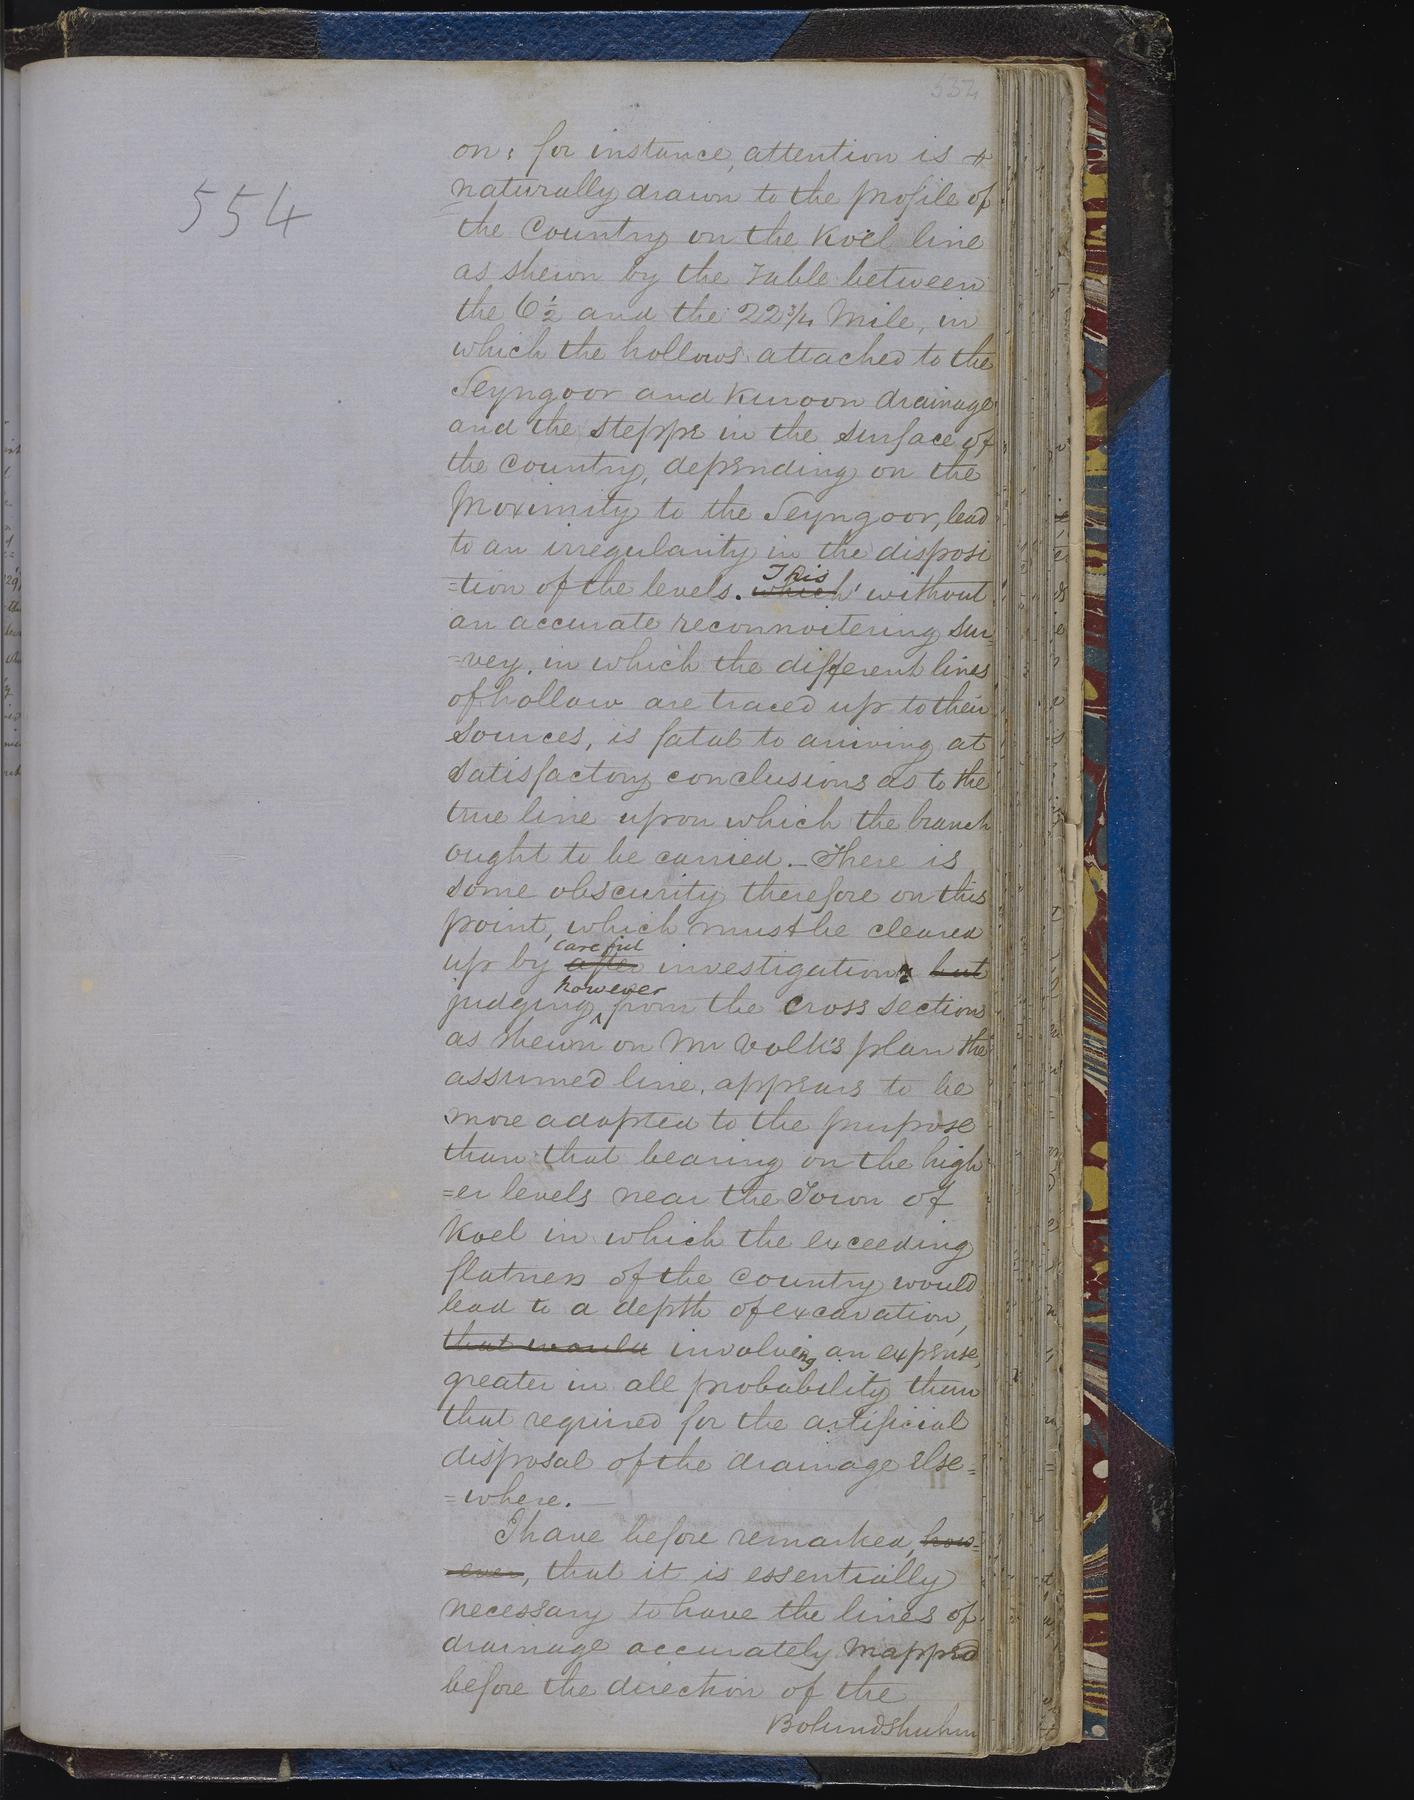 532
554
on; for instance, attention is
naturally drawn to the profile of
the Country on the Koël line
as shewn by the Table between
the 6½ and the 22¾ Mile, in
which the hollows attached to the
Seyngoor and Kuroon drainage
and the steppe in the surface of
the country, depending on the
proximity to the Seyngoor, lead
to an irregularity in the disposi
=tion of the levels. which This without
an accurate reconnoitering sur=
=vey, in which the different lines
of hollow are traced up to their
sources, is fatal to arriving at
satisfactory conclusions as to the
true line upon which the branch
ought to be carried. There is
some obscurity therefore on this
point, which must be cleared
up by after careful investigation, but
judging however from the cross section
as shewn on Mr Volk's plan the
assumed line, appears to be
more adapted to the purpose
than that bearing on the high
=er levels near the Town of
Koel in which the exceeding
flatness of the country would
lead to a depth of excavation,
that would involving an expense,
greater in all probability than
that required for the artificial
disposal of the drainage else=
=where.
I have before remarked, how=
=ever, that it is essentially
necessary to have the lines of
drainage accurately mapped
before the direction of the
Bolundshuhur